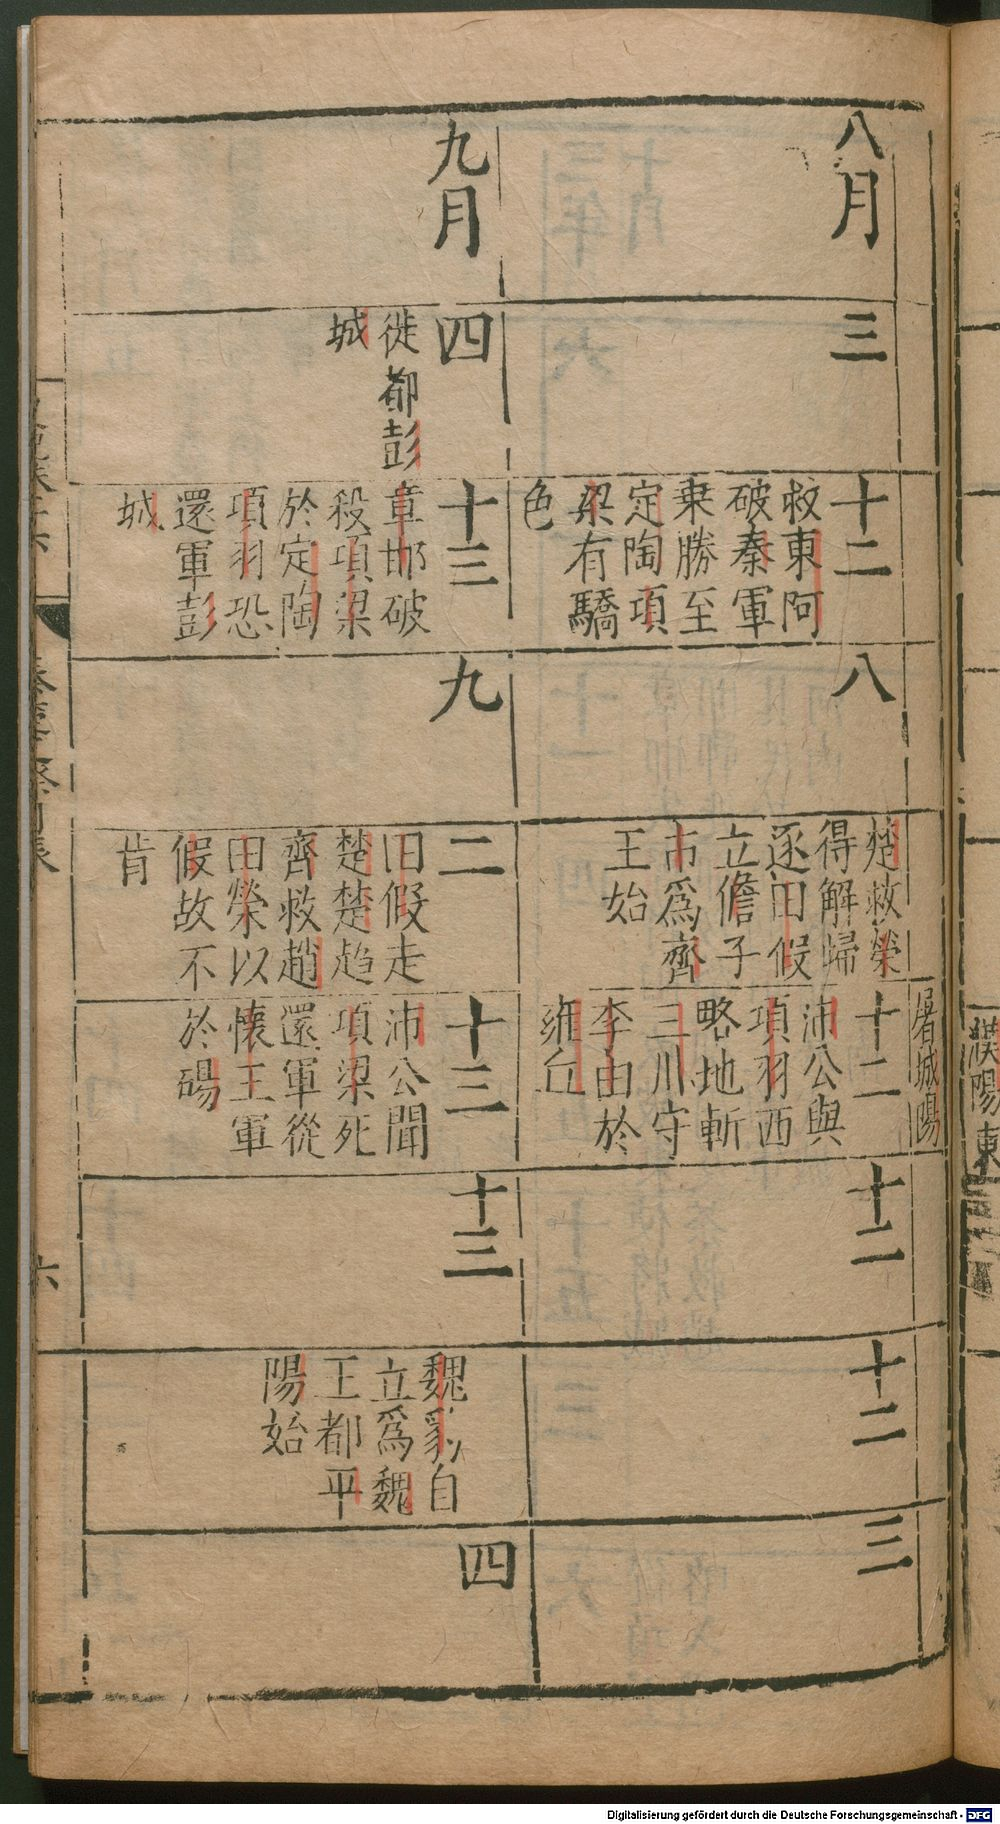 濮陽東
屠城陽
八月
三
十二
救東阿
破秦軍
乗勝至
定陶項
梁有驕
色
八
楚救榮
得解歸
逐田假
立儋子
市爲齊
王始
十二
沛公與
項羽西
略地斬
三川守
李由於
雍丘
十二
十二
三
九月
四
徙都彭
城
十三
章邯破
殺項梁
於定陶
項羽恐
還軍彭
城
九
二
田假走
楚楚趋
齊救趙
田榮以
假故不
肯
十三
沛公聞
項梁死
還軍從
懷王軍
於碭
十三
魏豹自
立爲魏
王都平
陽始
四
六
Digitalisierung gefördert durch die Deutsche Forschungsgemeinschaft - DFG